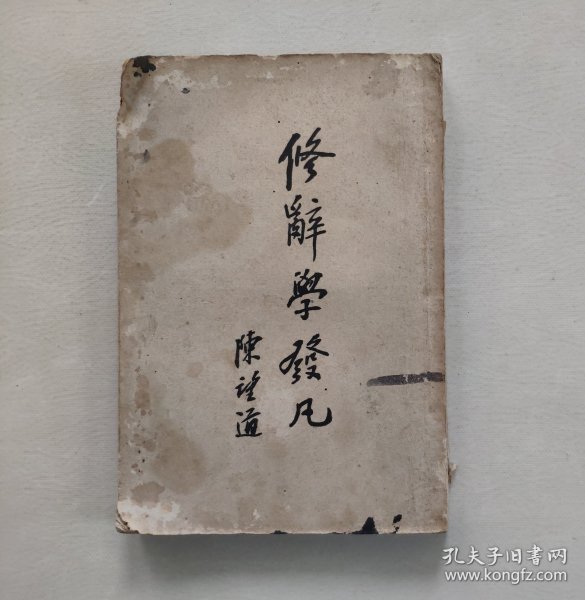 修辭學發凡
陳望道
孔夫子旧书网
www.kongfz.com